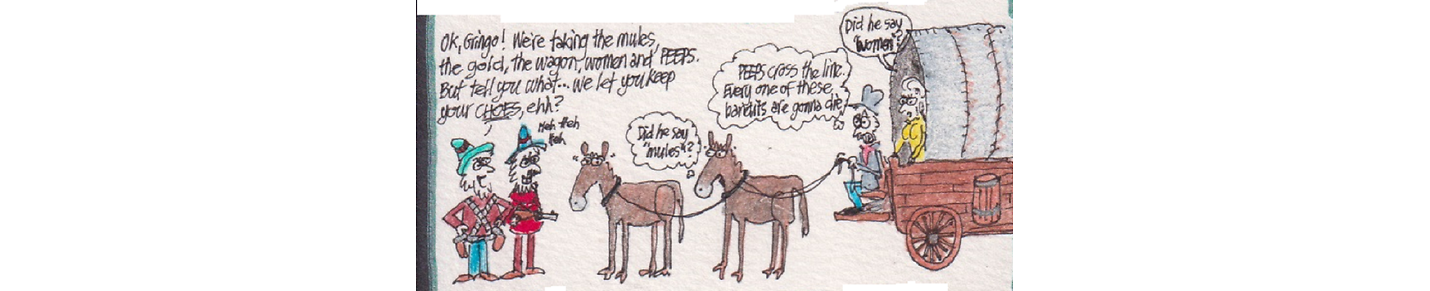 OK, Gringo! We're taking the mules,
the gold, the wagon, women and PEEPS.
But tell you what... we let you keep
your CHOES, ehh?
Heh Heh
Heh
Did he say
"mules"?
PEEPS cross the line.
Every one of these
bandits are gonna die.
Did he say
"Women"?